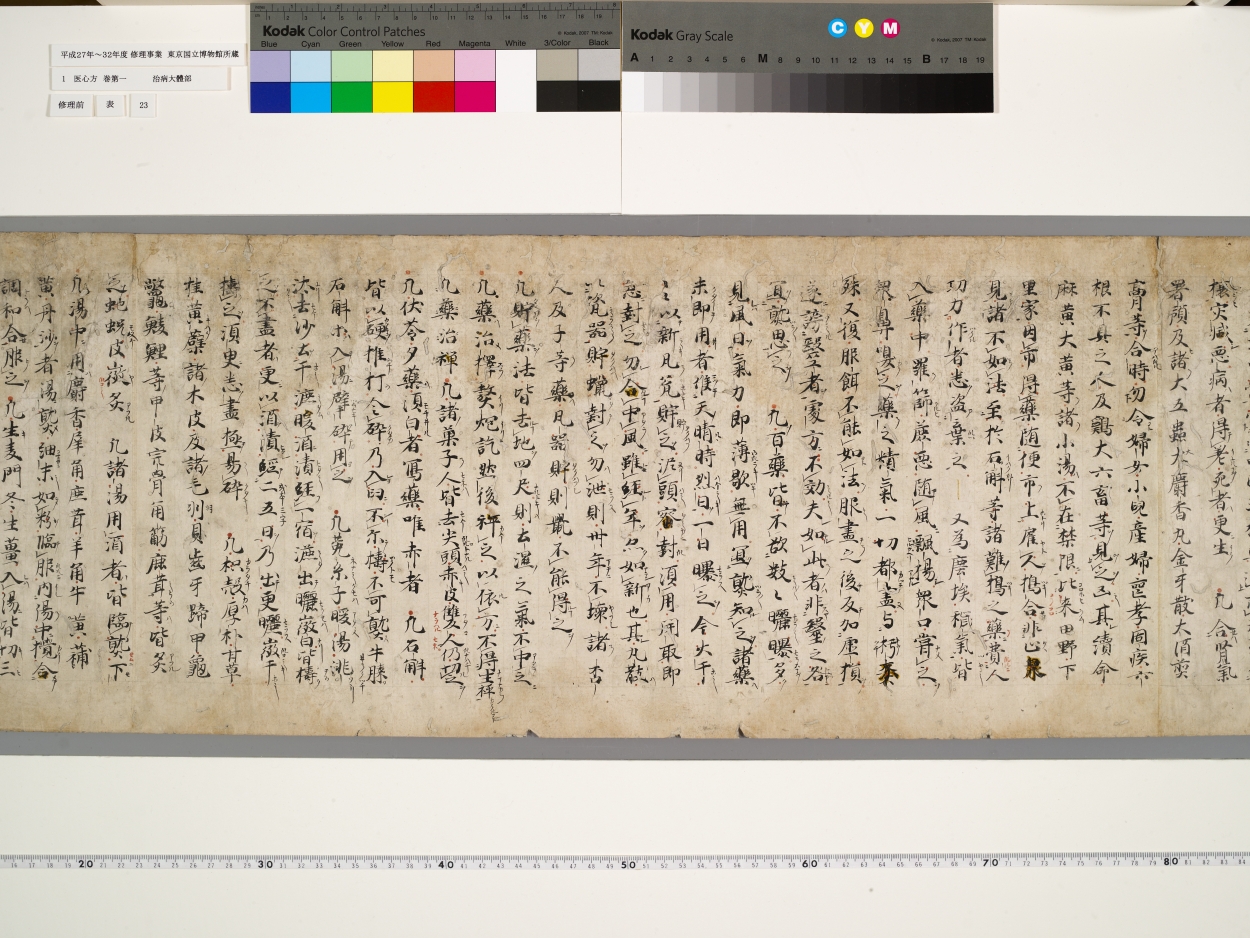 平成27年～32年度 修理事業 東京国立博物館所蔵
1 医心方 巻第一 治病大體部
修理前 表 23
Kodak Color Control Patches
Blue Cyan Green Yellow Red Magenta White 3/Color Black
Kodak Gray Scale
C Y M
A 1 2 3 4 5 6 M 8 9 10 11 12 13 14 15 B 17 18 19
病者得 死者更生 凡合腎氣
署預及諸大五 麝香丸金牙散大酒煎
膏等合時勿令婦女小兒産婦 孝固疾六
根不具之人及鷄犬六畜等見之凶其 命
麻黄大黄等諸小湯不在禁限此来田野下
里家因市得藥随便市上雇人搗合非止
見諸不如法至於石斛等諸難搗之藥費人
功力作者悉盗棄之 又為塵埃穢氣皆
入藥中羅篩 悪随風飄揚衆口嘗之
衆鼻嗅之藥之精氣一切都盡与朽木
殊又復服餌不能如法服盡之後反加虚損
遂謗醫者處方不効夫如此者非醫之咎
宜 思之 凡百藥皆不欲數々曬曝多
見風日氣力即薄歇無用宜 知之諸藥
未即用者 天晴時烈日一日曝之令大干
以新瓦 貯之泥頭密封須用開取即
急封之勿令中風雖經年亦如新也其丸散
以瓷器貯蠟封之勿泄則卅年不壊諸杏
人及子等藥瓦器貯則鼠不能得之
凡貯藥法皆去地四尺則去濕之氣不中之
凡藥治擇 炮訖然後秤之以依方不得生秤
凡藥治 凡諸菓子人皆去尖頭赤皮雙人仍切之
凡伏苓夕藥須白者寫藥唯赤者 凡石斛
皆以硬椎打令碎乃入臼不尒擣不可 牛膝
石斛ホ入湯擘碎用之 凡菟糸子暖湯洮
汰去沙土干漉暖酒漬經一宿漉出曬微皆擣
之不盡者更以酒漬經二五日乃出更曬微干
擣之須臾悉盡極易碎 凡枳殻厚朴甘草
桂黄蘗諸木皮及諸毛羽貝齒牙蹄甲龜
鼈鯪鯉等甲皮宍骨角筋鹿茸等皆炙
之蛇蛻皮 炙 凡諸湯用酒者皆臨 下
凡湯中用麝香犀角鹿茸羊角牛黄蒲
黄丹沙者湯 細末如粉臨服内湯中攪合
調和合服之 凡生麦門冬生薑入湯皆切三